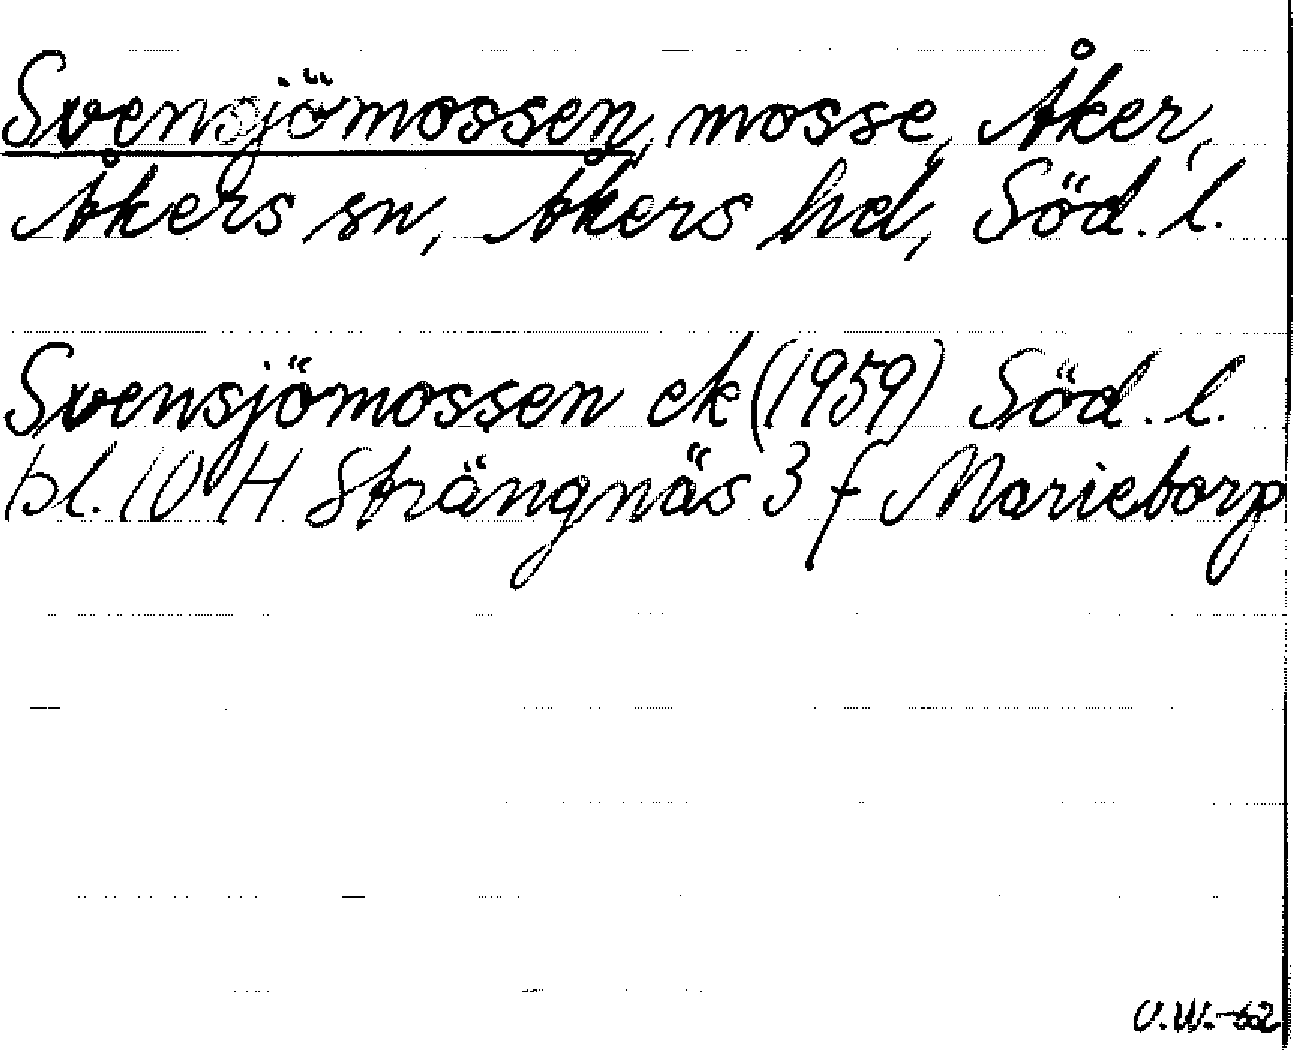 Svensjömossen, mosse, Åker,
Åkers sn, Åkers hd, Söd. l.
Svensjömossen ek (1959) Söd. l.
bl. 10 H Strängnäs 3 f Marietorp
U.W.-62